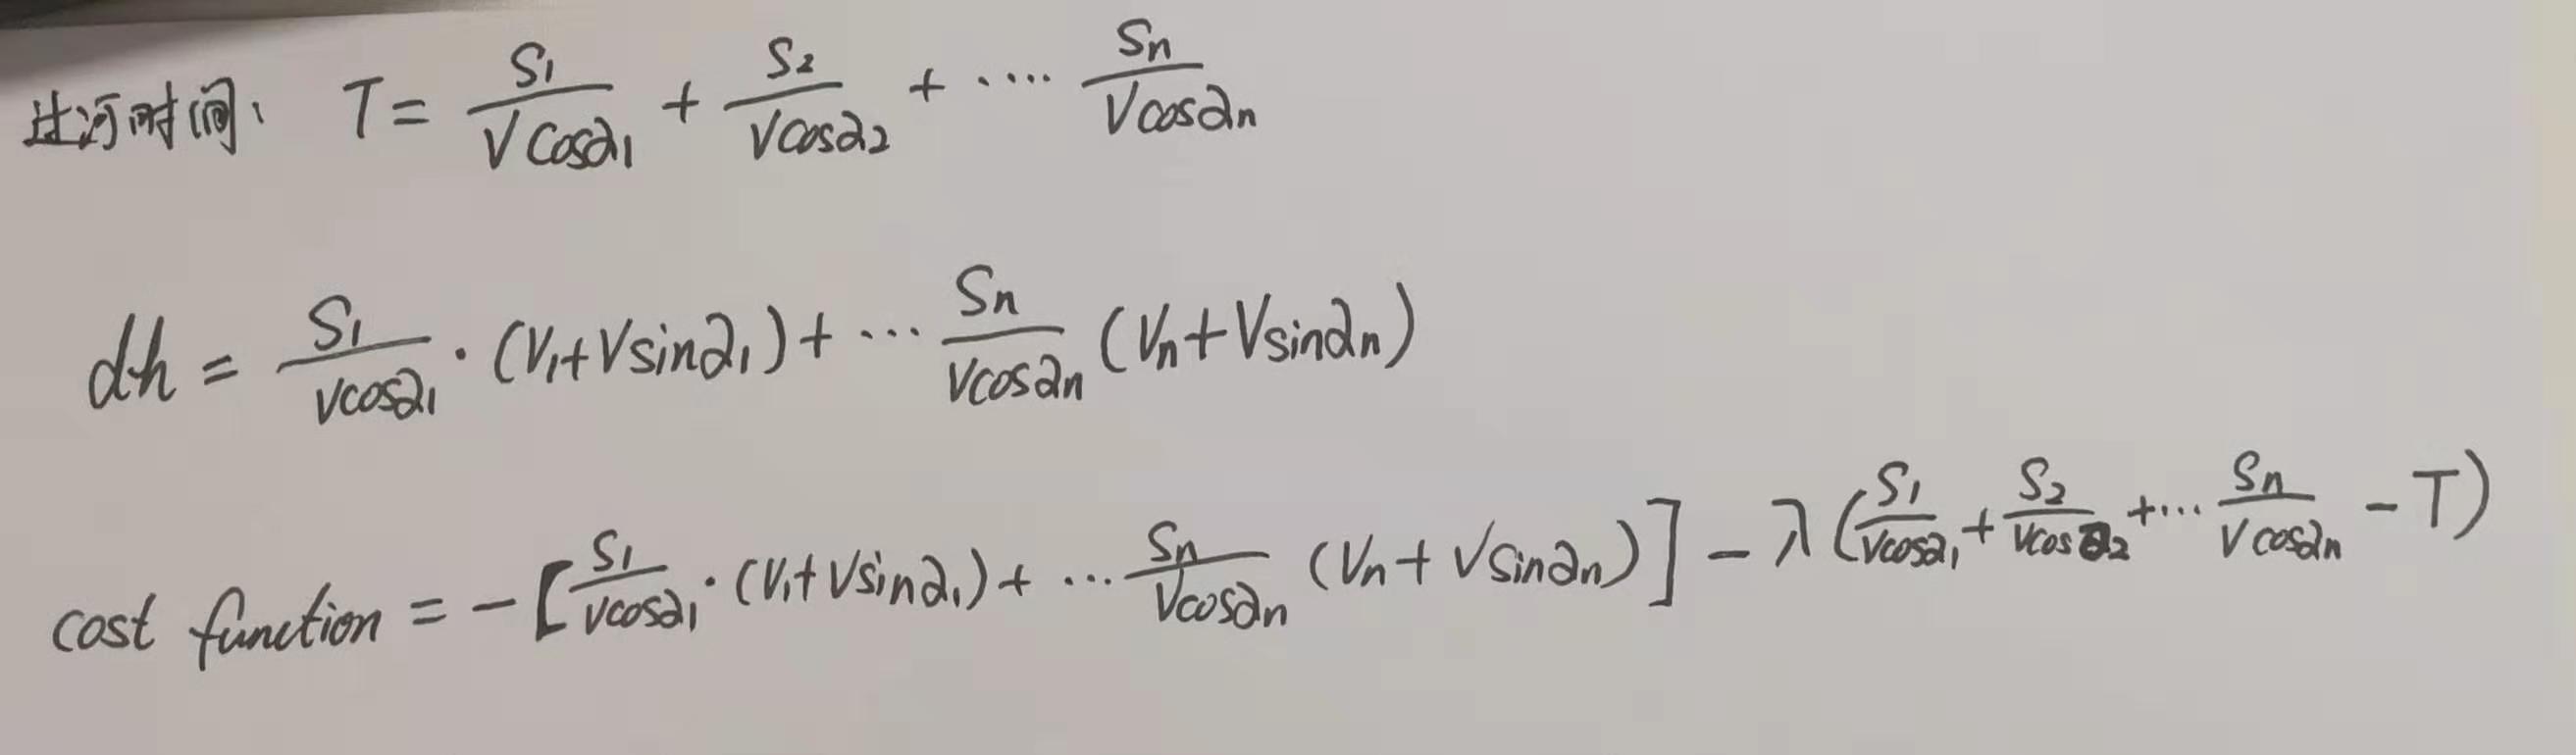 过河时间: T = S₁/(Vcosα₁) + S₂/(Vcosα₂) + ···· Sₙ/(Vcosαₙ)
dh = S₁/(Vcosα₁) · (V₁+Vsinα₁) + ··· Sₙ/(Vcosαₙ) (Vₙ+Vsinαₙ)
cost function = -[S₁/(Vcosα₁) · (V₁+Vsinα₁) + ··· Sₙ/(Vcosαₙ) (Vₙ+Vsinαₙ)] - λ(S₁/(Vcosα₁) + S₂/(Vcosα₂) + ··· Sₙ/(Vcosαₙ) - T)